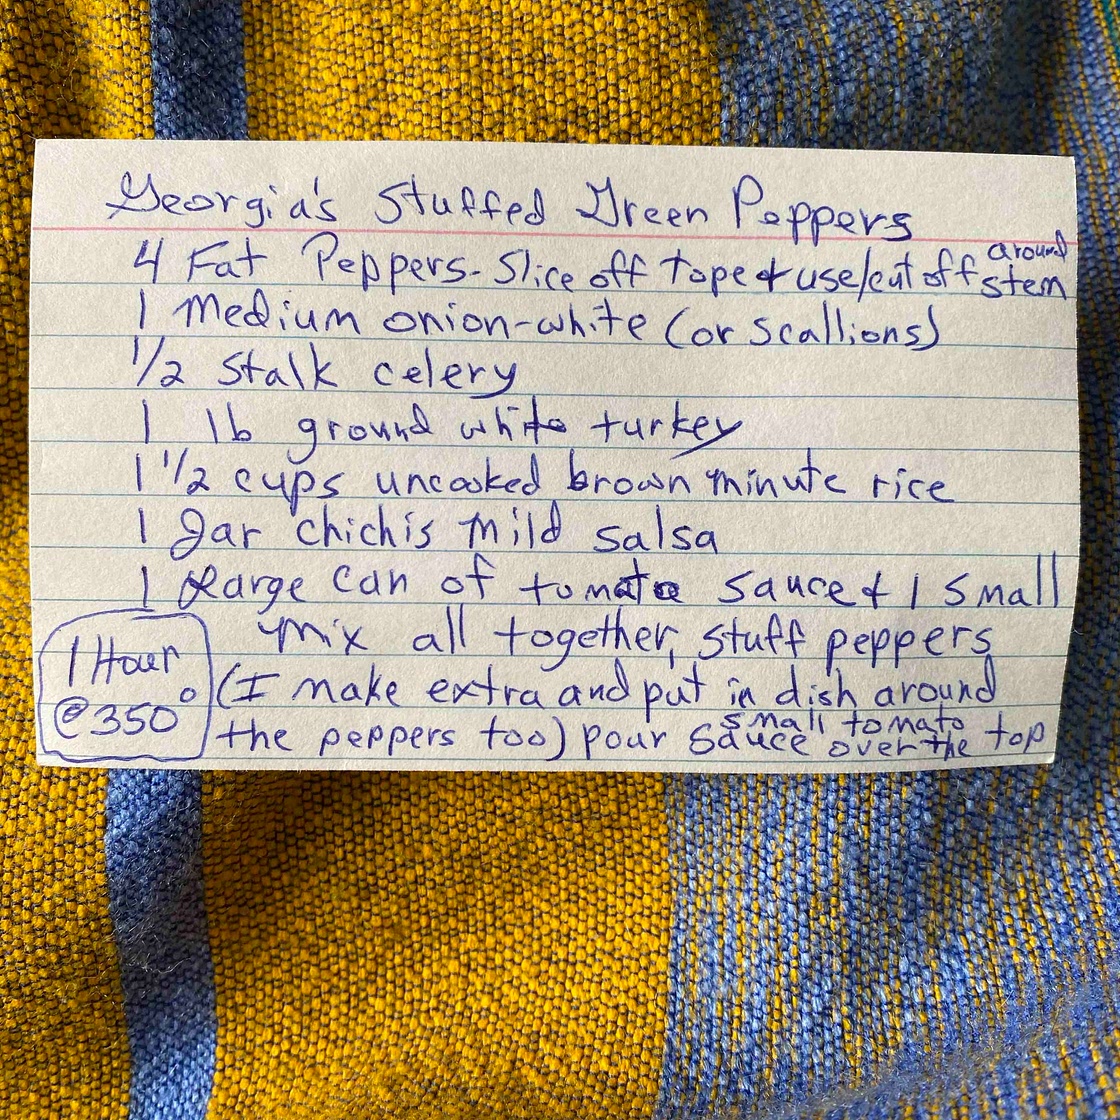 Georgia's Stuffed Green Peppers
4 Fat Peppers - Slice off tope & use/cut off around stem
1 Medium onion-white (or scallions)
1/2 Stalk celery
1 lb ground white turkey
1 1/2 cups uncooked brown minute rice
1 Jar chichis mild salsa
1 Large can of tomato sauce & 1 small
Mix all together, stuff peppers
(I make extra and put in dish around
the peppers too) pour small tomato sauce over the top
1 Hour
@ 350°